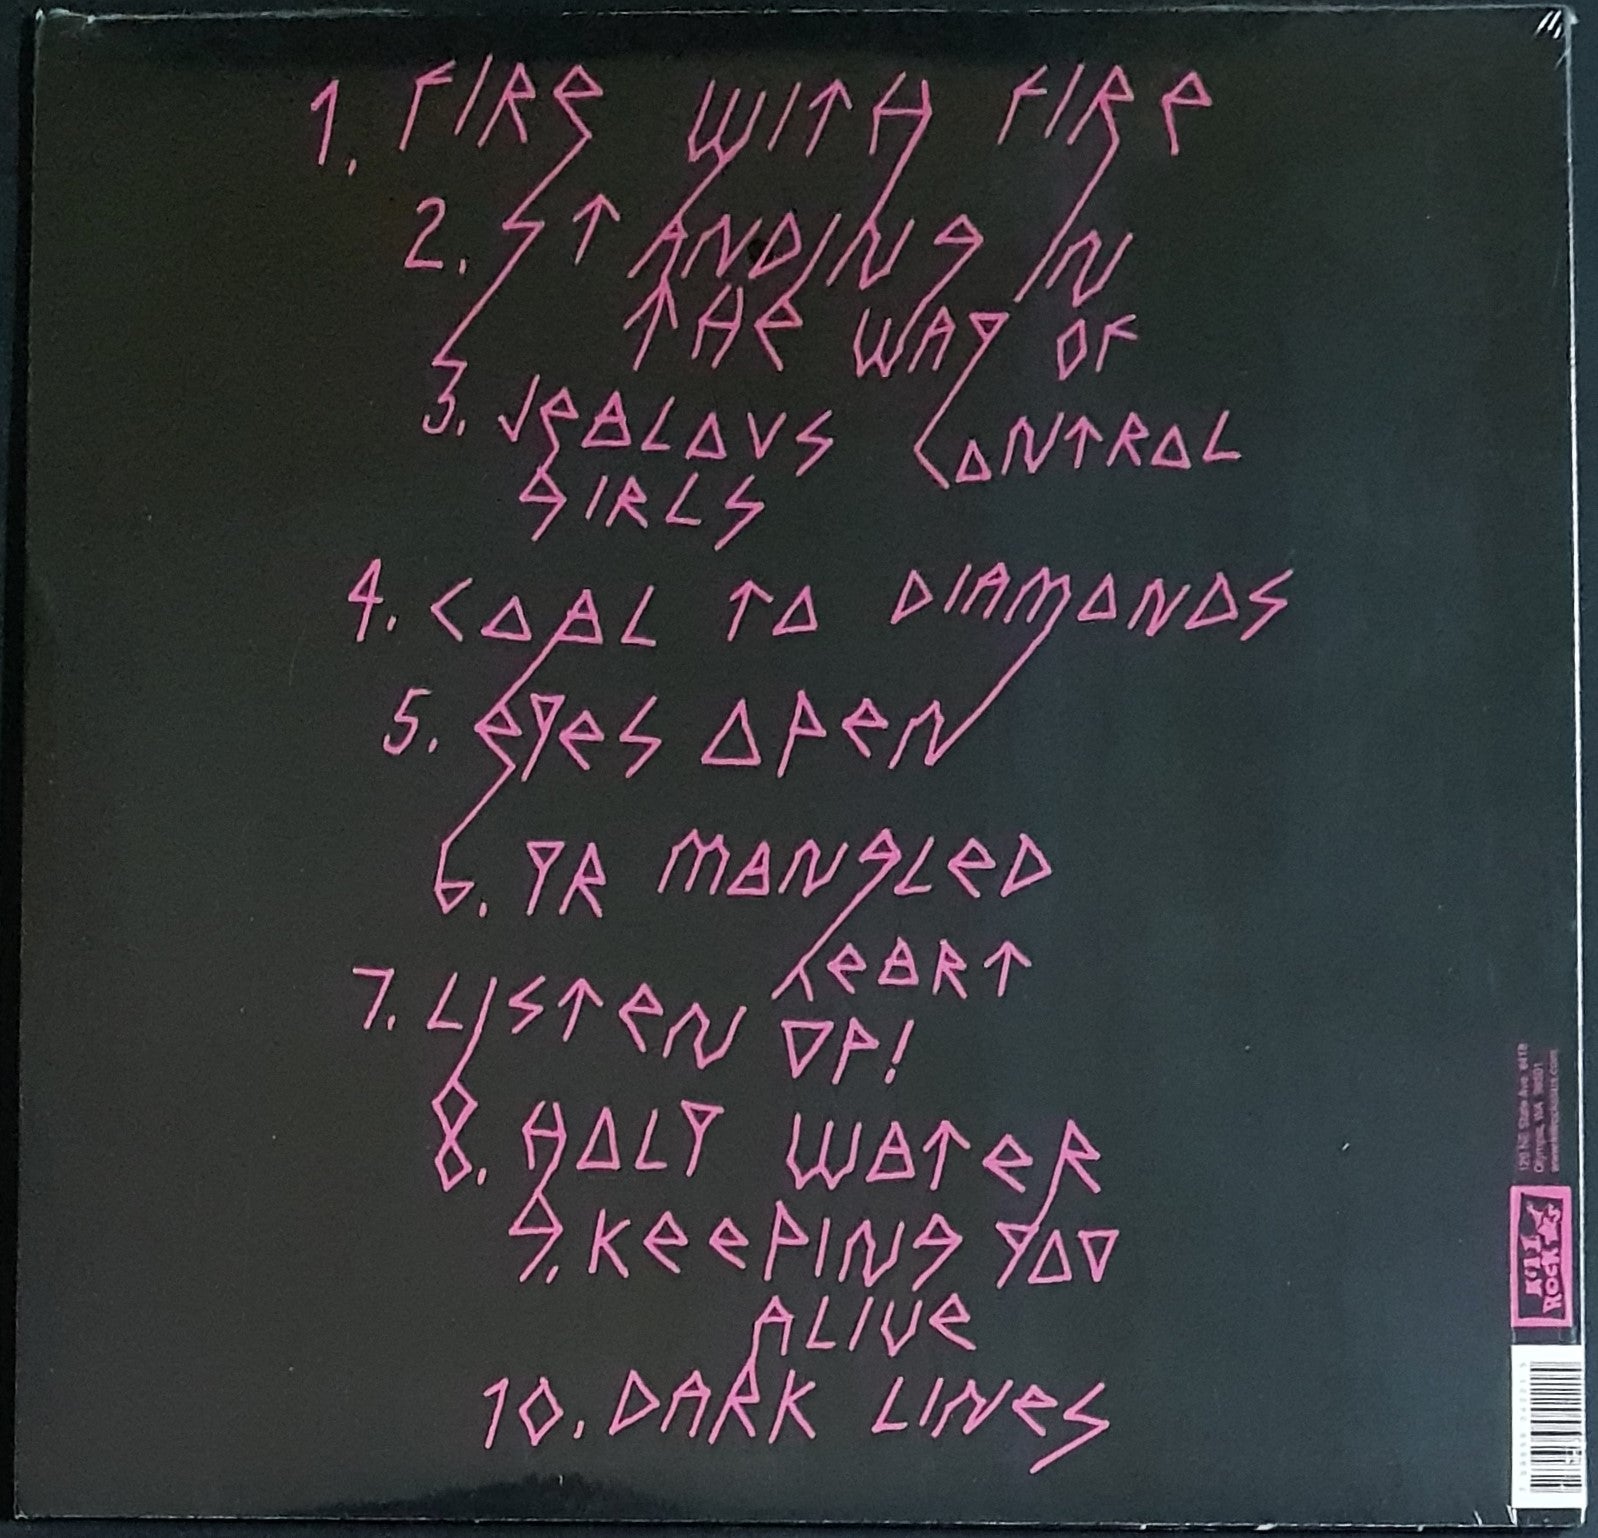 1. FIRE WITH FIRE
2. STANDING IN
THE WAY OF
CONTROL
3. JEALOUS
GIRLS
4. COAL TO DIAMONDS
5. EYES OPEN
6. YR MANGLED
HEART
7. LISTEN UP!
8. HOLY WATER
9. KEEPING YOU
ALIVE
10. DARK LINES
120 NE State Ave. #418
Olympia, WA 98501
www.killrockstars.com
KILL
ROCK